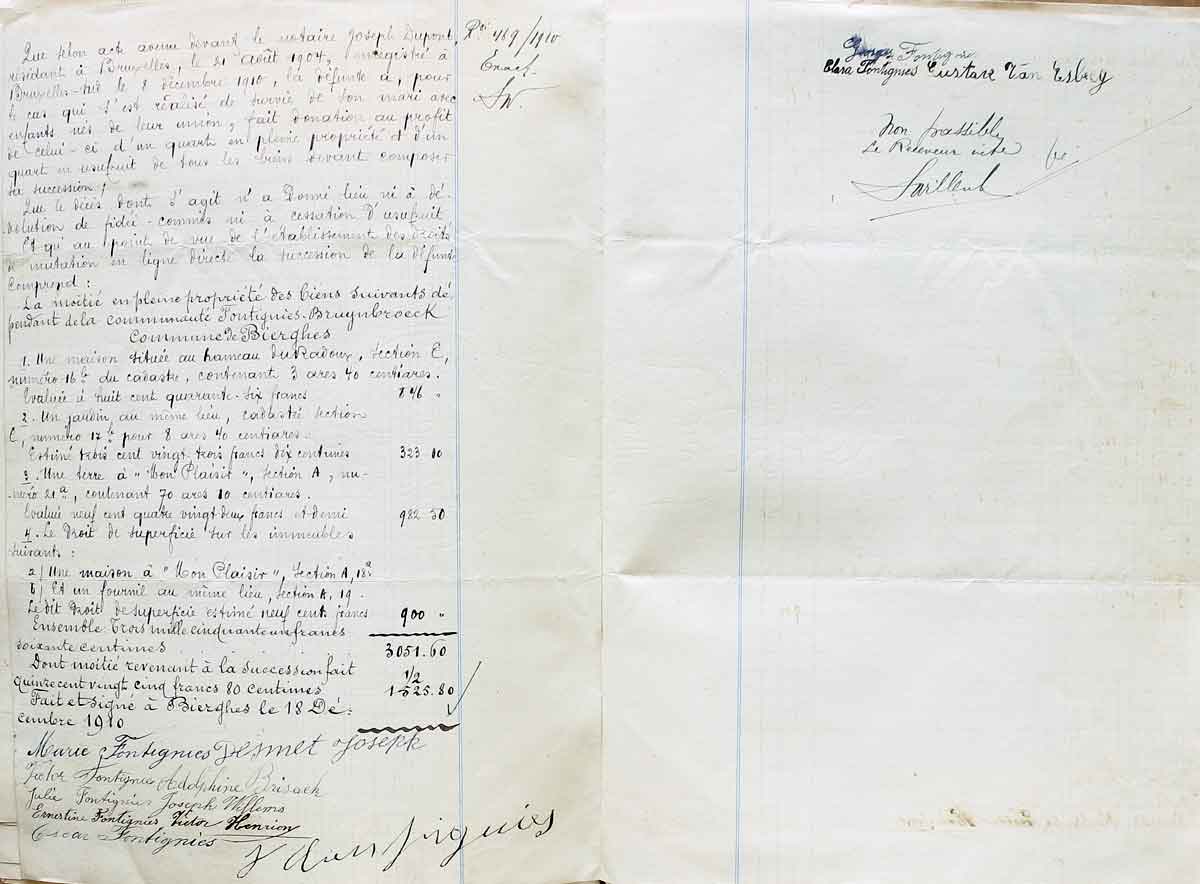 Que selon acte avenu devant le notaire Joseph Dupont,
résidant à Bruxelles, le 21 août 1904, enregistré à
Bruxelles-sud le 8 décembre 1910, la défunte a, pour
le cas qui s'est réalisé de survie de son mari avec
enfants nés de leur union, fait donation au profit
de celui-ci d'un quart en pleine propriété et d'un
quart en usufruit de tous les biens devant composer
sa succession !
Que le décès dont s'agit n'a donné lieu ni à dé-
volution de fidéi-commis ni à cessation d'usufruit
Et qu'au point de vue de l'établissement des droits
de mutation en ligne directe la succession de la défunte
comprend :
La moitié en pleine propriété des biens suivants dé-
pendant de la communauté Fontignies-Bruynbroeck
Commune de Bierghes
1. Une maison située au hameau du Radoux, section C,
numéro 16 du cadastre, contenant 3 ares 40 centiares.
Evaluée à huit cent quarante-six francs 846 "
2. Un jardin, au même lieu, cadastré section
C, numéro 17 pour 8 ares 40 centiares.
Estimé trois cent vingt-trois francs dix centimes 323 10
3. Une terre à "Mon Plaisir", section A, nu-
méro 21a, contenant 70 ares 10 centiares.
Evaluée neuf cent quatre vingt deux francs et demi 982 50
4. Le droit de superficie sur les immeubles
suivants :
a/ Une maison à "Mon Plaisir", section A, 18a
b/ Et un fournil au même lieu, section A, 19.
Le dit droit de superficie estimé neuf cent francs 900 "
Ensemble: Trois mille cinquante un francs
soixante centimes 3051.60
Dont moitié revenant à la succession fait 1/2
quinze cent vingt cinq francs 80 centimes 1525.80
Fait et signé à Bierghes le 18 Dé-
cembre 1910
Marie Fontignies Desmet Joseph
Victor Fontignies Adolphine Brisack
Julie Fontignies Joseph Willems
Ernestine Fontignies Victor Henrion
Oscar Fontignies
469/1910
Exact
Fontignies
Clara Fontignies Gustave Van
Non passible
Le Receveur